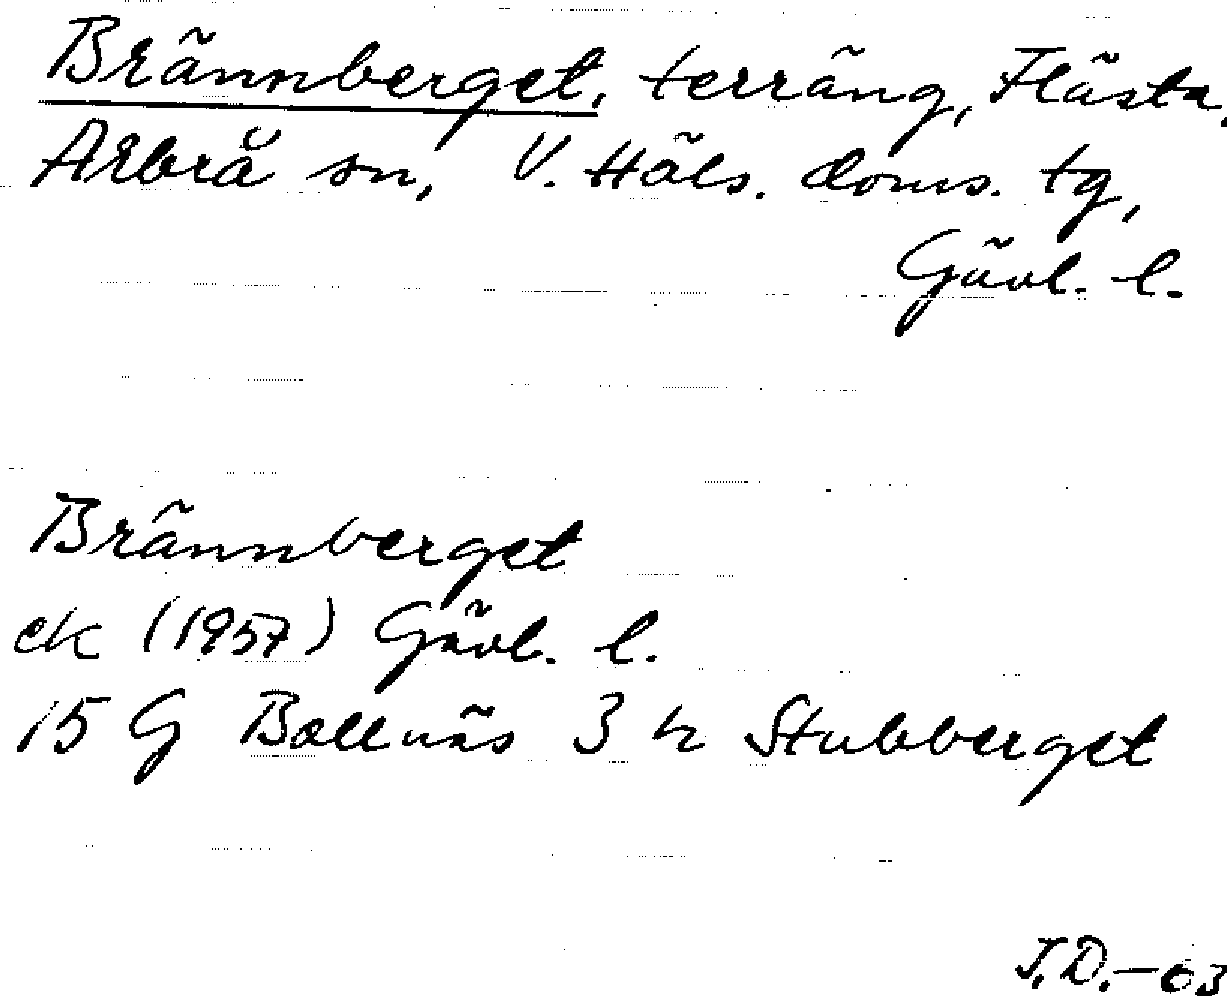 Brännberget, terräng, Flästa,
Arbrå sn, V. Häls. doms. tg,
Gävl. l.
Brännberget
ek (1957) Gävl. l.
15 G Bollnäs 3 h Stubberget
J.D.-63